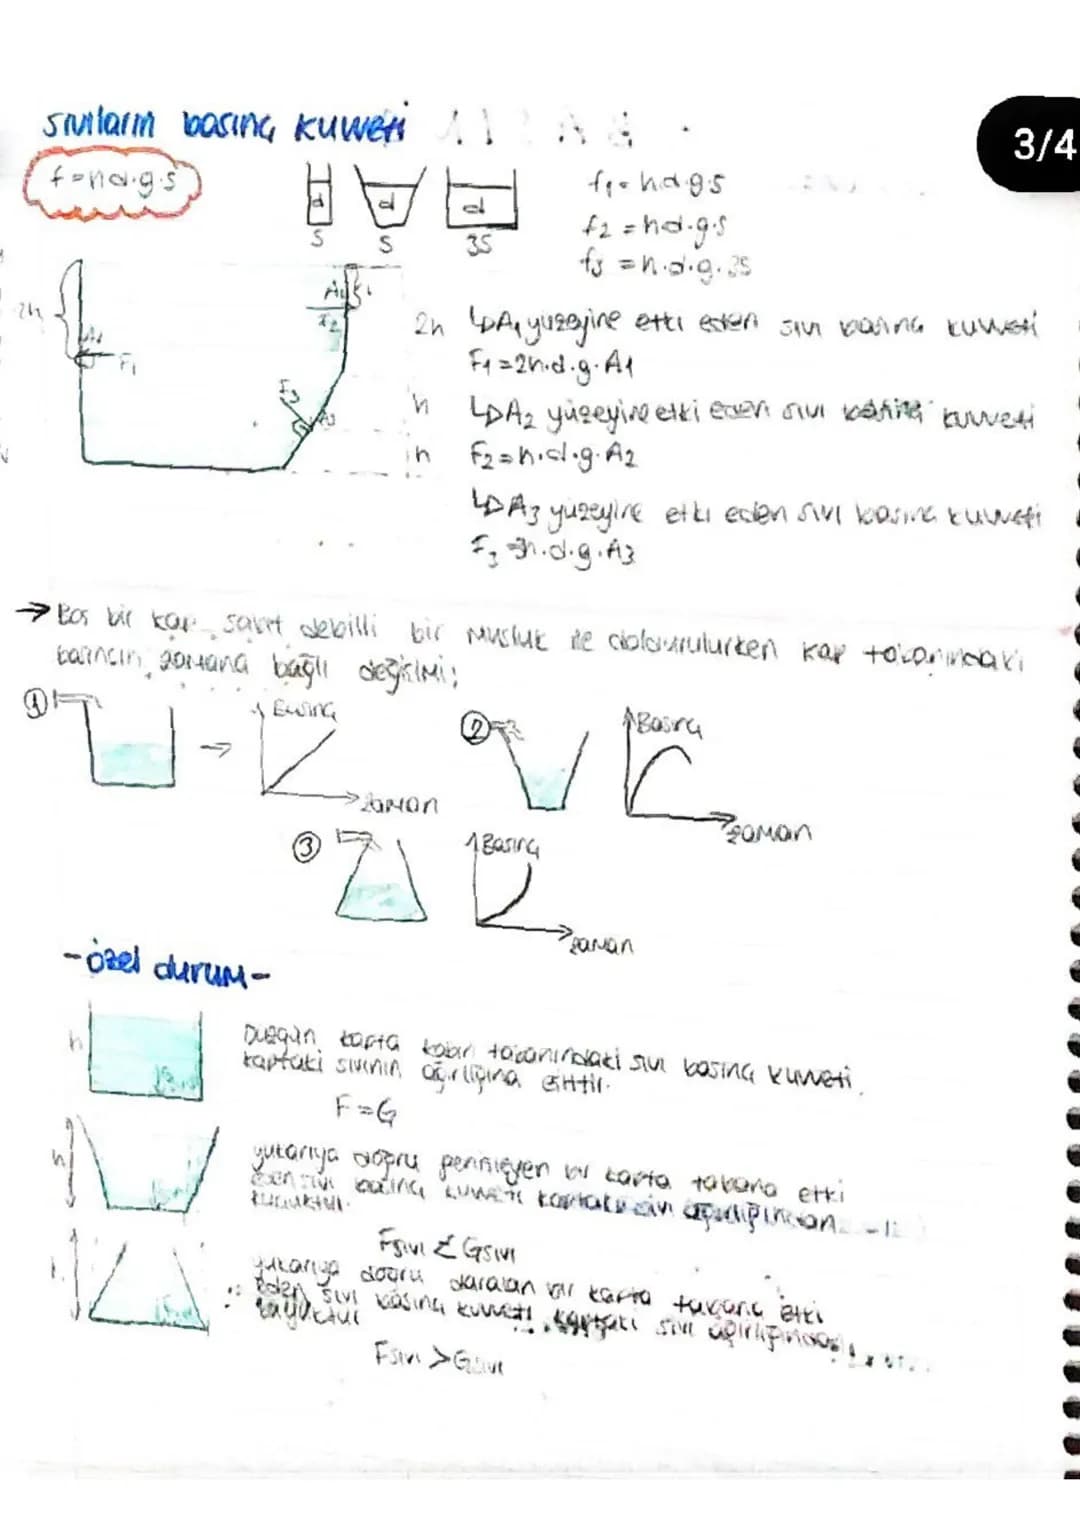 sıvıların basınç kuvveti
3/4
f=h.d.g.s
d
d
d
S
S
3S
f1=h.d.g.s
f2=h.d.g.s
f3=h.d.g.3s
2h
A1
F1
A2
F2
F3
A3
2h
h
h
↳A1 yüzeyine etki eden sıvı basınç kuvveti
F1=2h.d.g.A1
↳A2 yüzeyine etki eden sıvı basınç kuvveti
F2=h.d.g.A2
↳A3 yüzeyine etki eden sıvı basınç kuvveti
F3=3h.d.g.A3
→Boş bir kap sabit debilli bir musluk ile doldurulurken kap tabanındaki
basıncın zamana bağlı değişimi;
① → Basınç
zaman
② Basınç
zaman
③ Basınç
zaman
-özel durum-
h
Düzgün kapta kabın tabanındaki sıvı basınç kuvveti
kaptaki sıvının ağırlığına eşittir.
F=G
h
yukarıya doğru genişleyen bir kapta tabana etki
eden sıvı basınç kuvveti kaptaki sıvı ağırlığından
küçüktür.
Fsıvı < Gsıvı
yukarıya doğru daralan bir kapta tabana etki
eden sıvı basınç kuvveti kaptaki sıvı ağırlığından
büyüktür
Fsıvı >Gsıvı